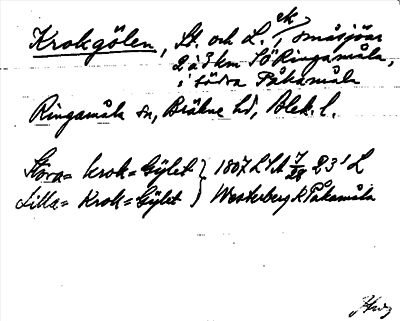 Krokgölen, St. och L., ek småsjöar
2 à 3 km SÖ Ringamåla,
i södra Påkamåla
Ringamåla sn, Bräkne hd, Blek. l.
Stora= krok=Gylet } 1807 LSA 7/28 23' L
Lilla= Krok=Gylet } Westerberg k Påkamåla